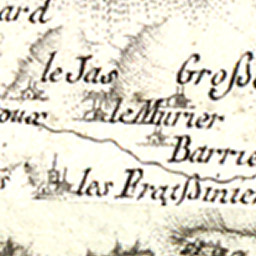 ard
le Jas
Große
oux
le Murier
Barrie
s
les Fraißinier